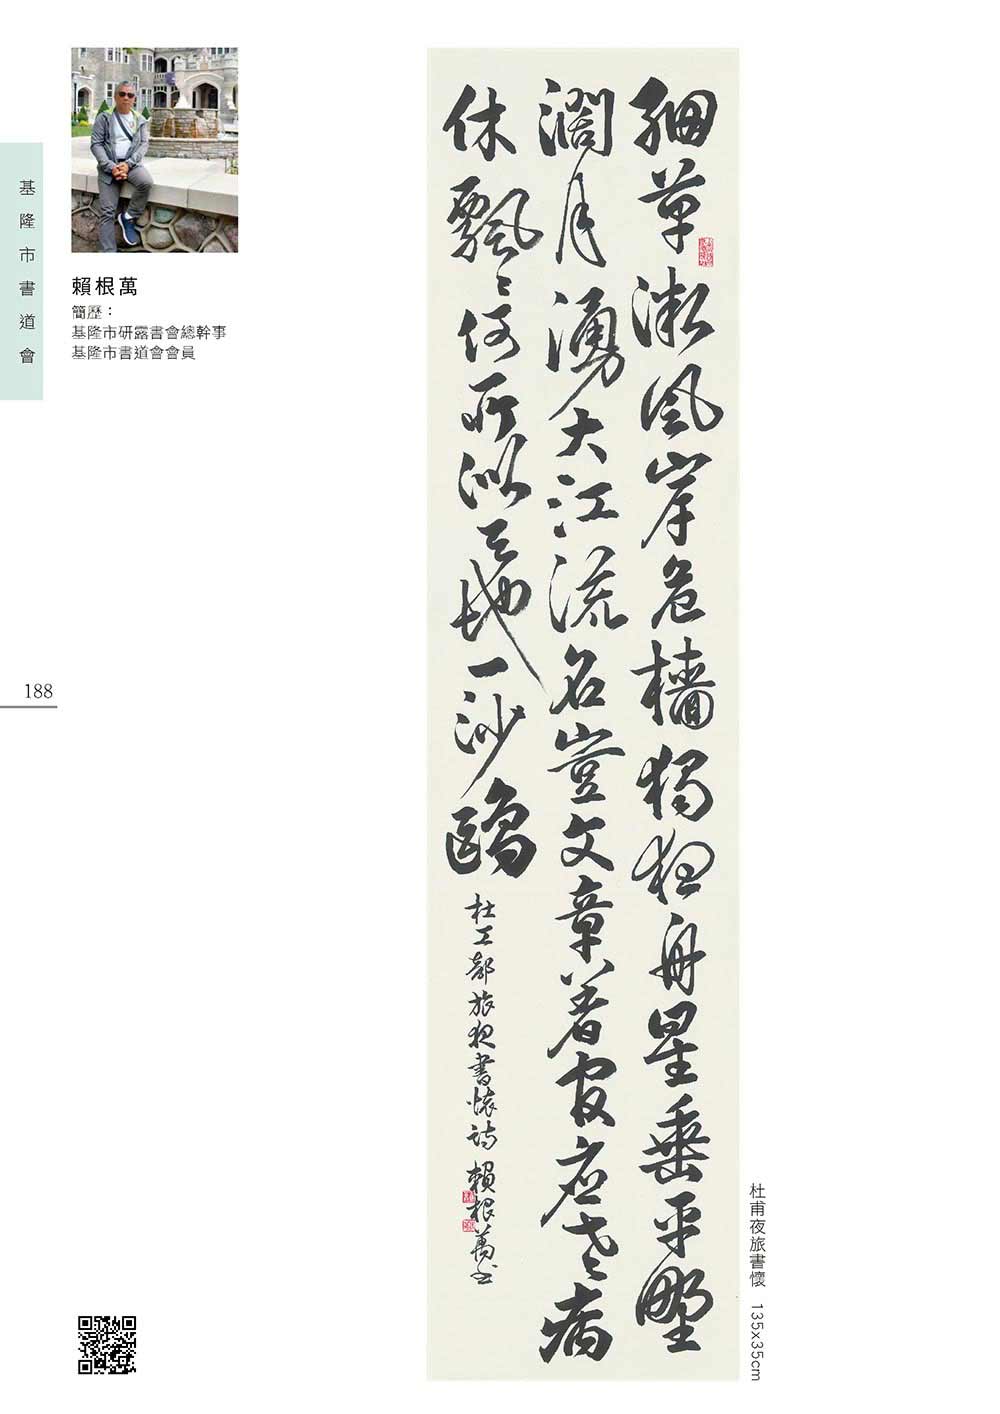 基隆市書道會
賴根萬
簡歷：
基隆市研露書會總幹事
基隆市書道會會員
188
細草微風岸危檣獨夜舟星垂平野
濶月湧大江流名豈文章著官應老病
休飄飄何所似天地一沙鷗
杜工部旅夜書懷詩 賴根萬書
杜甫夜旅書懷 135x35cm